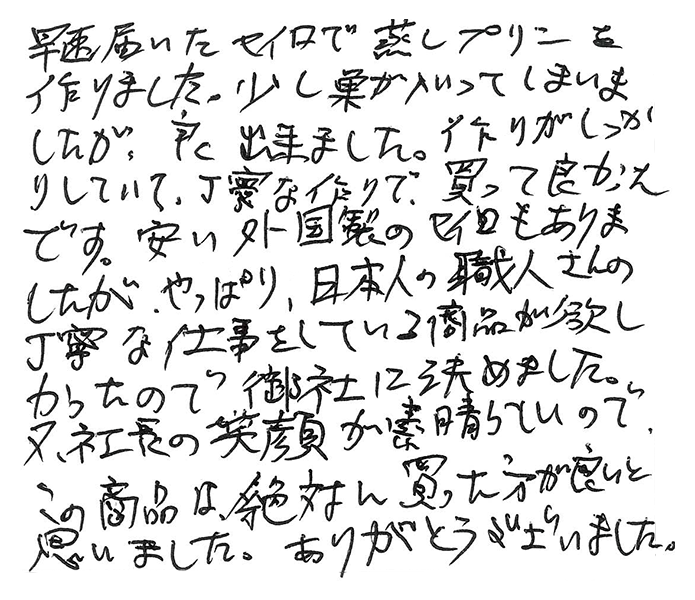 早速届いたセイロで蒸しプリンを
作りました。少し巣が入いってしまいま
したが、 出来ました。作りがしっか
りしていて、丁寧な作りで、買って良かった
です。安い外国製のセイロもありま
したが、やっぱり、日本人の職人さんの
丁寧な仕事をしている商品が欲し
かったので御社に決めました。
又、社長の笑顔が素晴らしいので、
この商品は、絶対に買った方が良いと
思いました。ありがとうございました。